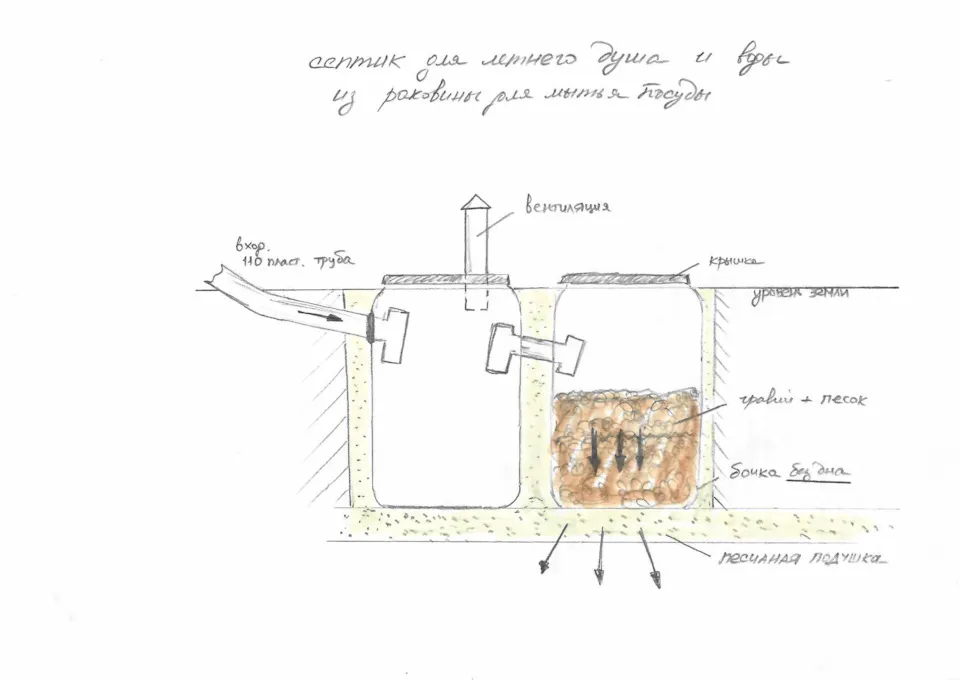 септик для летнего душа и воды
из раковины для мытья посуды
вентиляция
вход.
110 пласт. труба
крышка
уровень земли
гравий + песок
бочка без дна
песчаная подушка